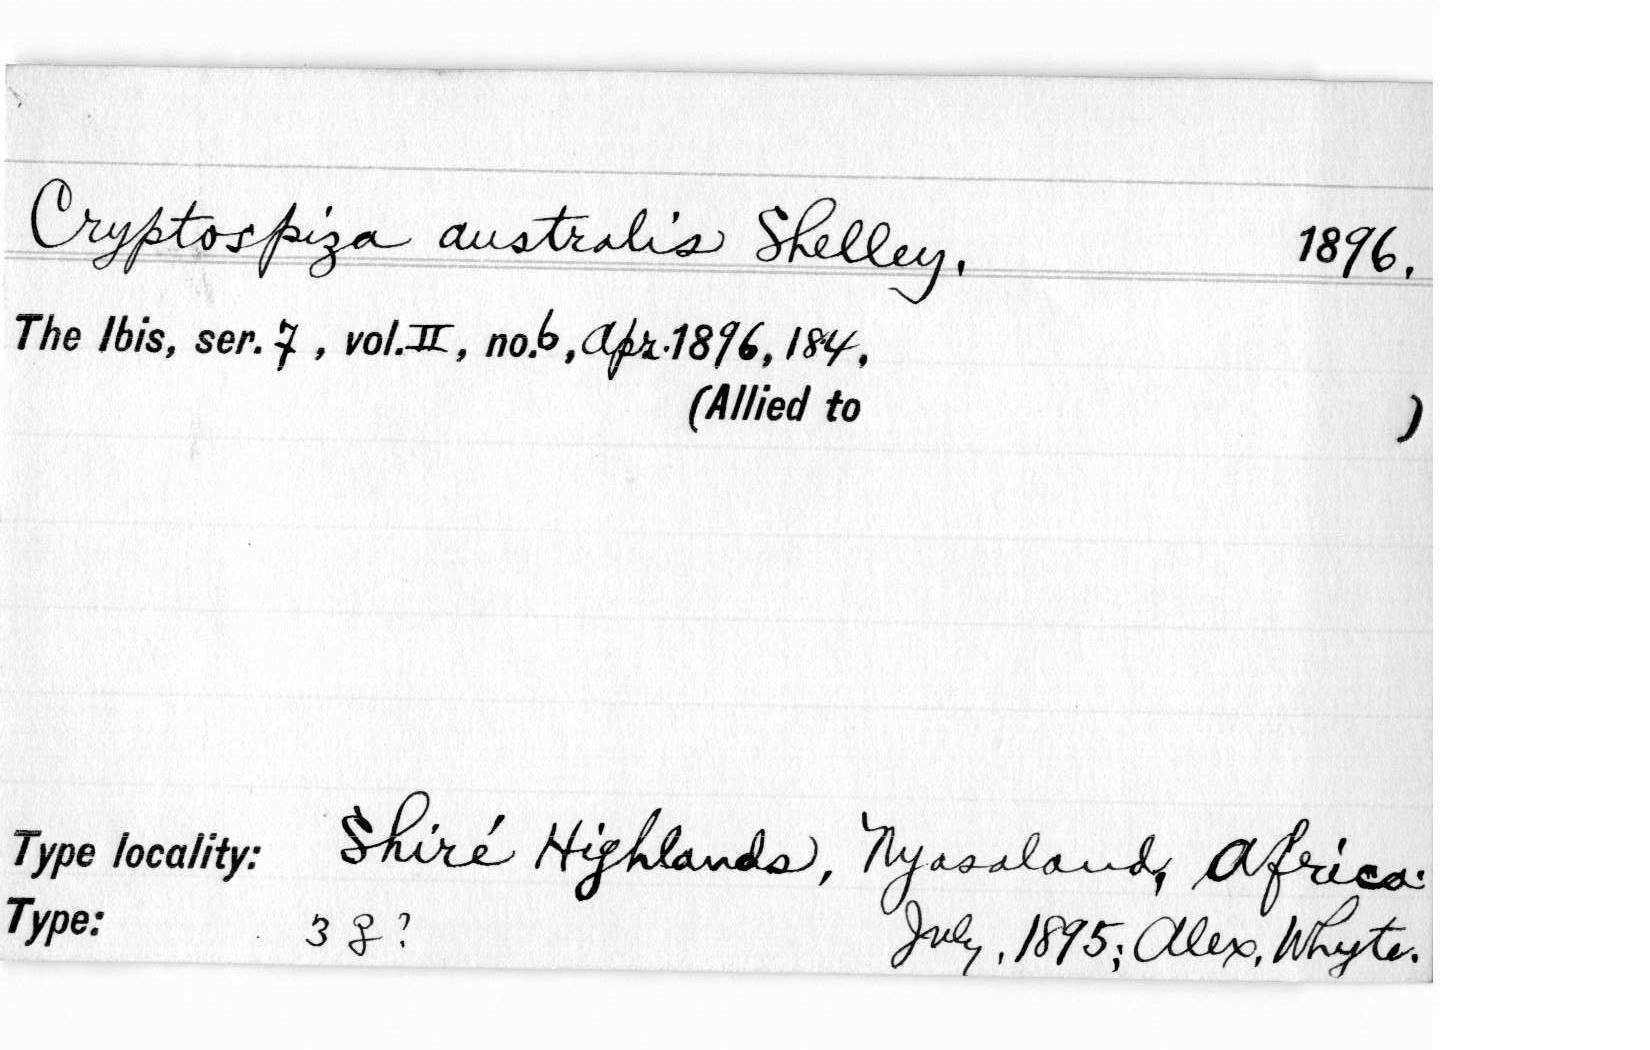 Cryptospiza australis Shelley. 1896.
The Ibis, ser. 7, vol. II, no. 6, Apr. 1896, 184.
(Allied to )
Type locality: Shiré Highlands, Nyasaland, Africa:
Type: 3 ♀? July, 1895; Alex. Whyte.